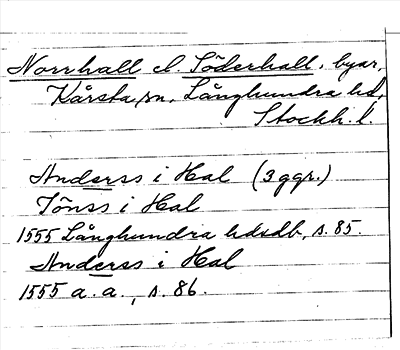 Norrhall el. Söderhall, byar,
Kårsta sn, Långhundra hd,
Stockh. l.
Anderss i Hal (3 ggr.)
Jönss i Hal
1555 Långhundra hdsdb, s. 85.
Anderss i Hal
1555 a. a., s. 86.